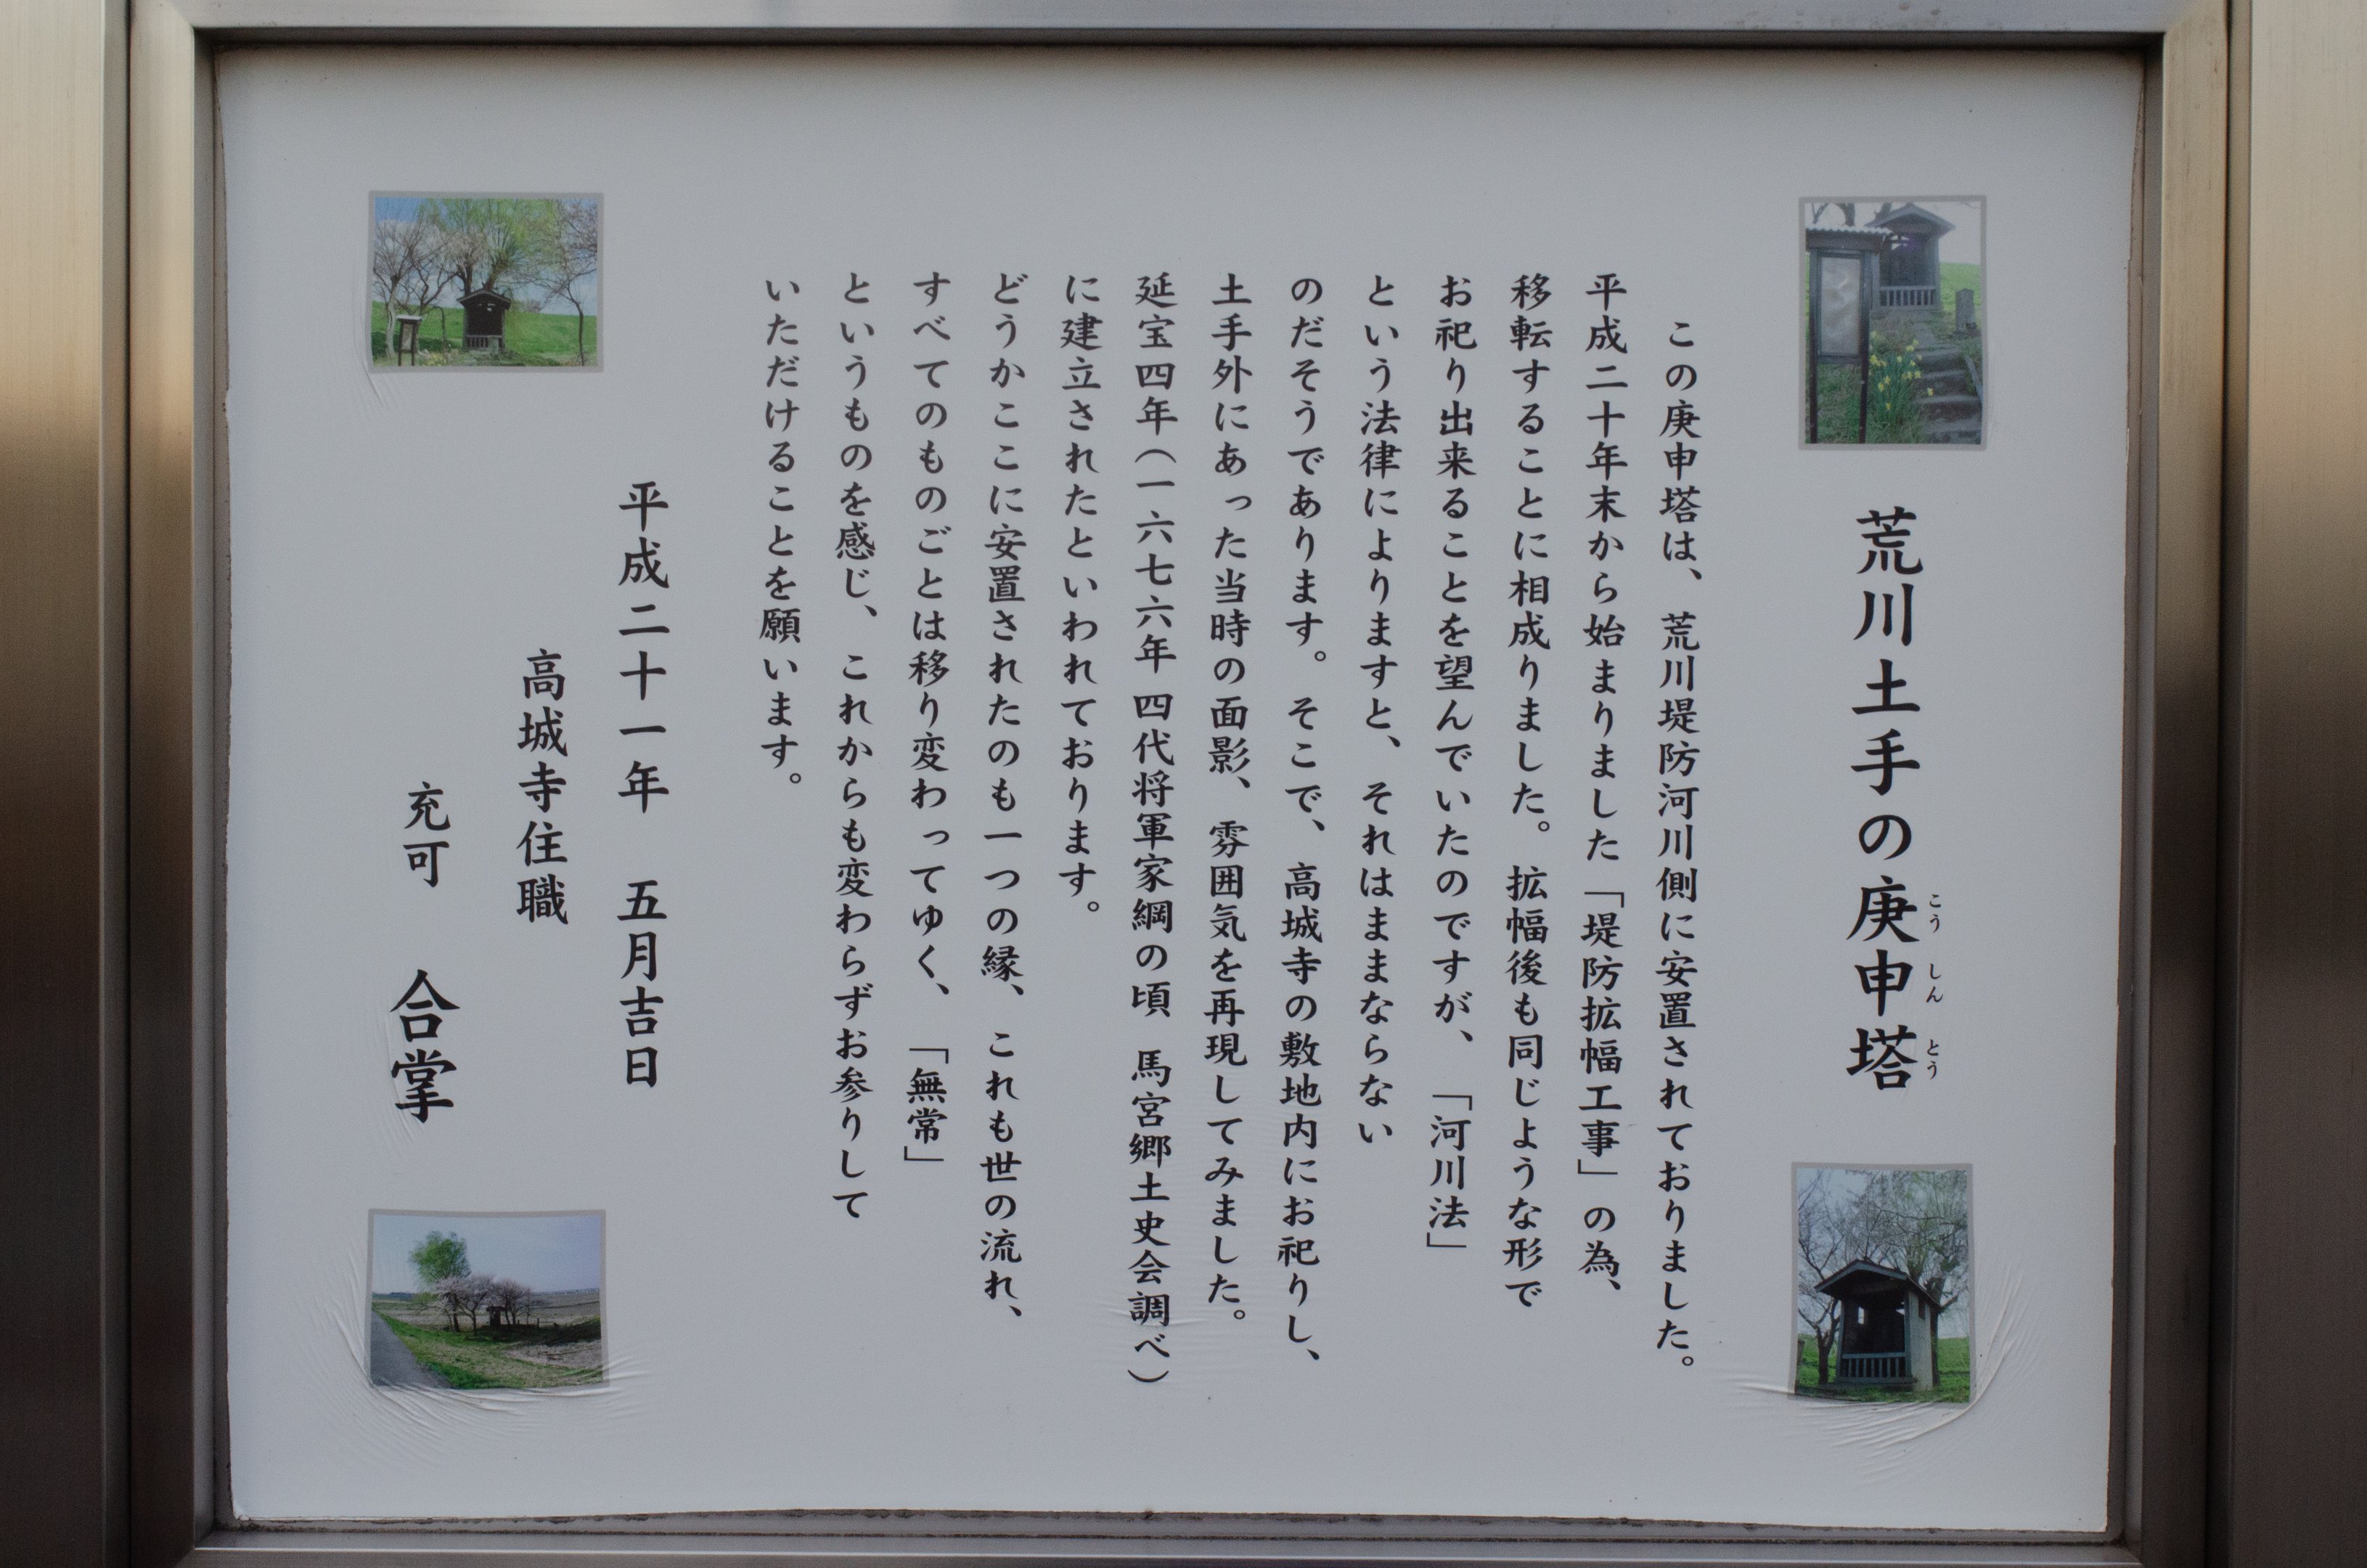 荒川土手の庚申塔
こう しん とう
この庚申塔は、荒川堤防河川側に安置されておりました。
平成二十年末から始まりました「堤防拡幅工事」の為、
移転することに相成りました。拡幅後も同じような形で
お祀り出来ることを望んでいたのですが、「河川法」
という法律によりますと、それはままならない
のだそうであります。そこで、高城寺の敷地内にお祀りし、
土手外にあった当時の面影、雰囲気を再現してみました。
延宝四年(一六七六年 四代将軍家綱の頃 馬宮郷土史会調べ)
に建立されたといわれております。
どうかここに安置されたのも一つの縁、これも世の流れ、
すべてのものごとは移り変わってゆく、「無常」
というものを感じ、これからも変わらずお参りして
いただけることを願います。
平成二十一年 五月吉日
高城寺住職
充可 合掌